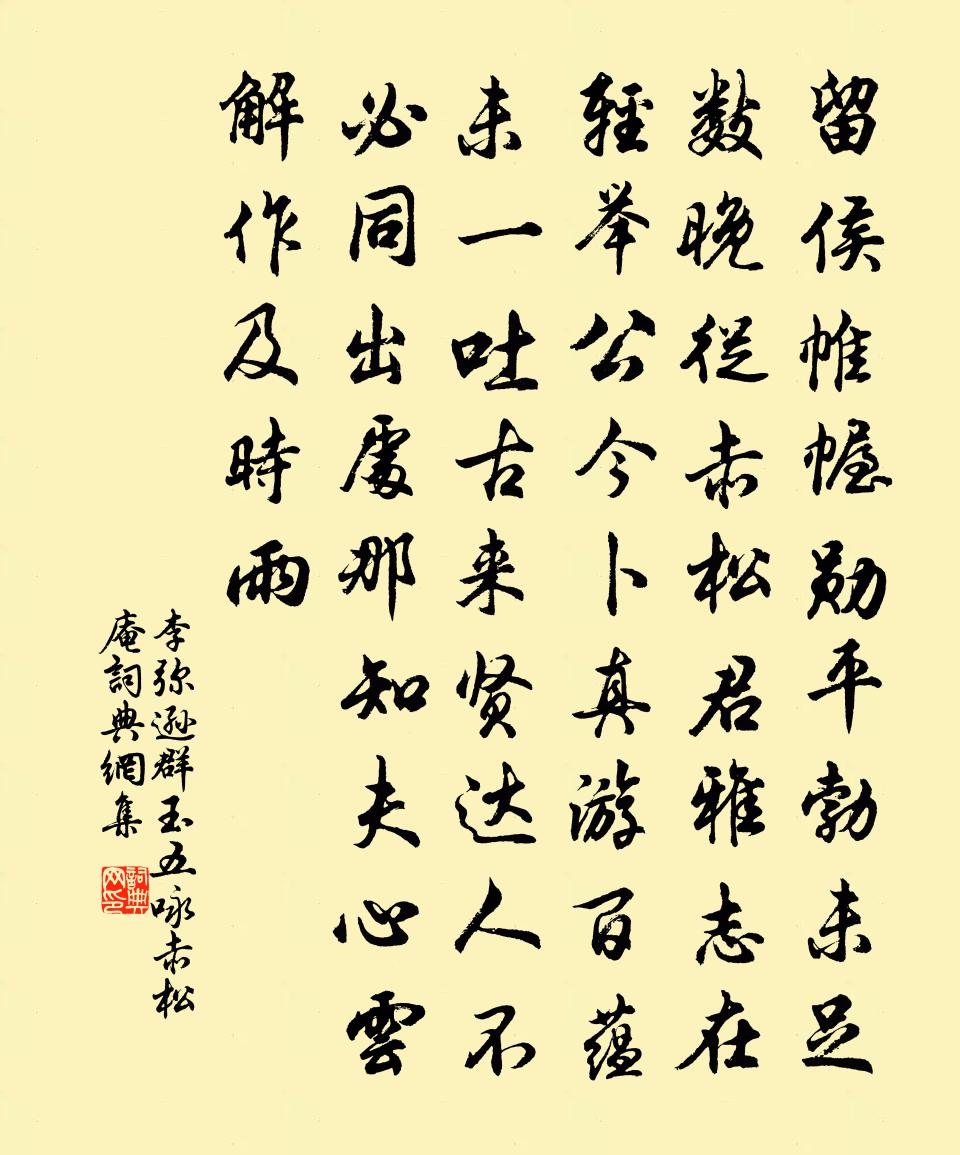 留侯帷幄勋平勃未足
数晚從赤松君雅志在
輕举公今卜真游百蕴
未一吐古来贤达人不
必同出處那知夫心雲
解作及時雨
李弥遜群玉五咏赤松
庵詞典網集
詞典网印